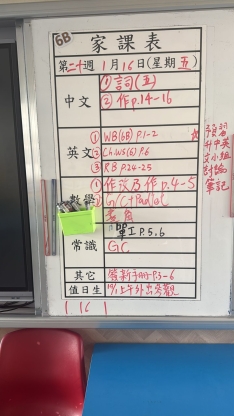 6B
家課表
第二十週 1月16日(星期五)
中文
① 詞(五)
② 作p.14-16
英文
① WB(6B) P.1-2
② Ch.WS(6) P.6
③ RB P.24-25
預習
升中英
文小組
討論
筆記
數學
① 作改及作p.4-5
常識
單工 P.5.6
GC
其它
值日生
1 16 1